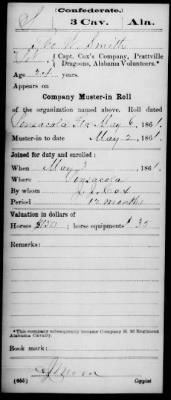 (Confederate.)
S 3 Cav. Ala.
Smith
Capt. Cox's Company, Prattville
Dragoons, Alabama Volunteers.*
Age 24 years.
Appears on
Company Muster-in Roll
of the organization named above. Roll dated
Pensacola Fla May 6, 1861.
Muster-in to date May 2, 1861.
Joined for duty and enrolled:
When May 3, 1861.
Where Pensacola
By whom J. J. Cox
Period 12 months
Valuation in dollars of
Horses $ ; horse equipments $ 35
Remarks:
*This company subsequently became Company H, 3d Regiment
Alabama Cavalry.
Book mark:
(655) Copyist